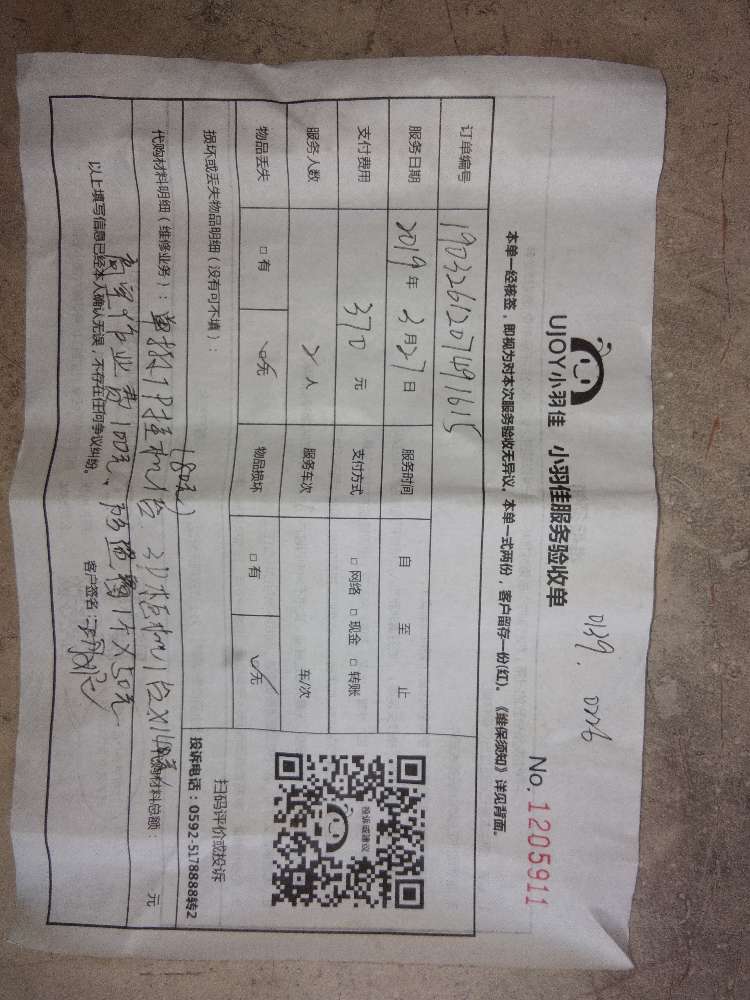 0139. 0226
UJOY小羽佳 小羽佳服务验收单
No. 1205911
本单一经核签，即视为对本次服务验收无异议，本单一式两份，客户留存一份(红)。《维保须知》详见背面。
订单编号 1903261207491615
服务日期 2019年 3月27日 服务时间 自 至 止
支付费用 370 元 支付方式 □ 网络 □ 现金 □ 转账
服务人数 2 人 服务车次 车/次
物品丢失 □ 有 ☑无 物品损坏 □ 有 ☑无
投诉或建议
扫码评价或投诉
投诉电话：0592-5178888转2
损坏或丢失物品明细（没有可不填）：
(80元)
代购材料明细（维修业务）：单拆1P挂机1台 3P柜机1台X140元 代购材料总额： 元
高空作业费100元、 1个X50元
以上填写信息已经本人确认无误，不存在任何争议纠纷。 客户签名：